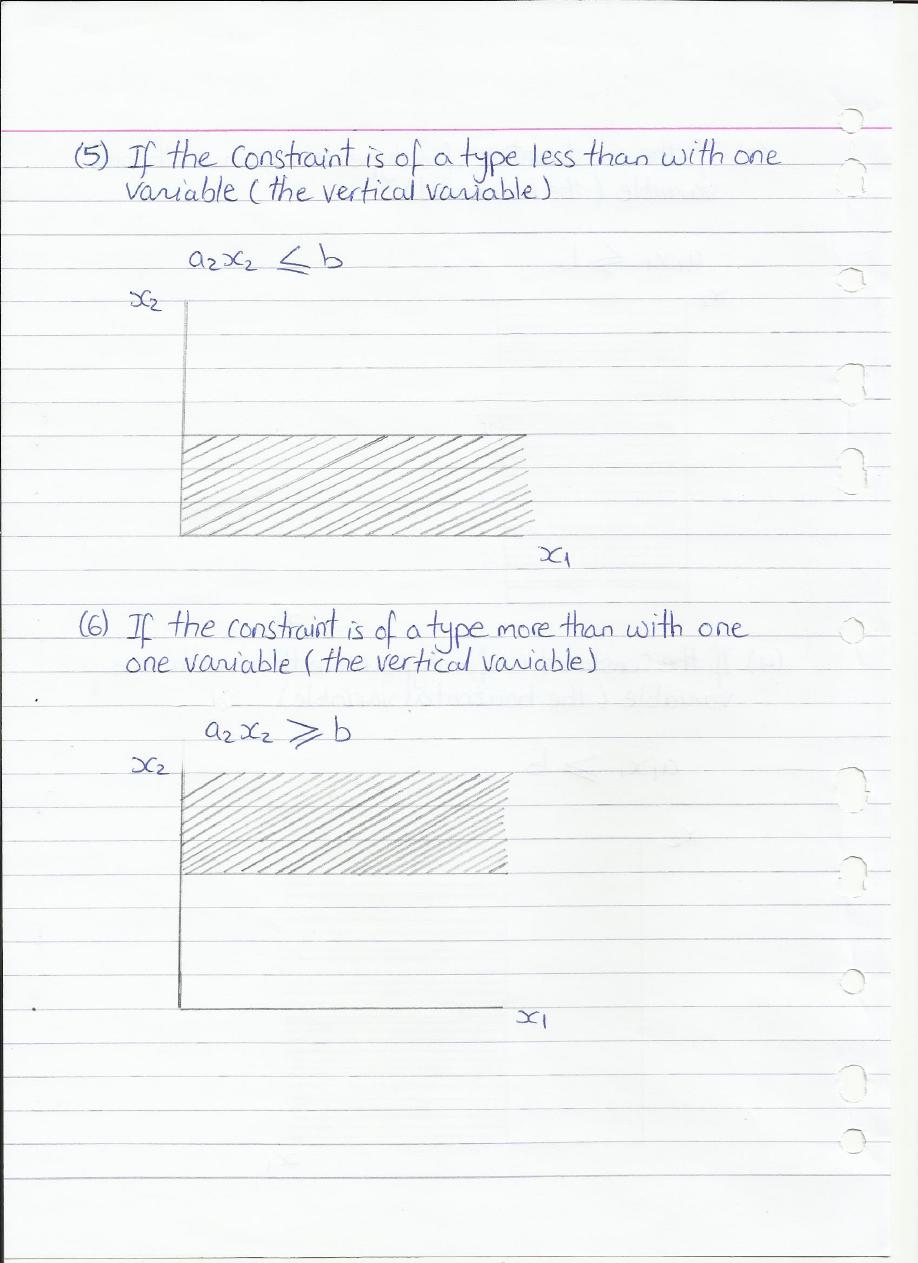 (5) If the constraint is of a type less than with one
variable (the vertical variable)
a₂x₂ ≤ b
x₂
x₁
(6) If the constraint is of a type more than with one
one variable (the vertical variable)
a₂x₂ ⩾ b
x₂
x₁